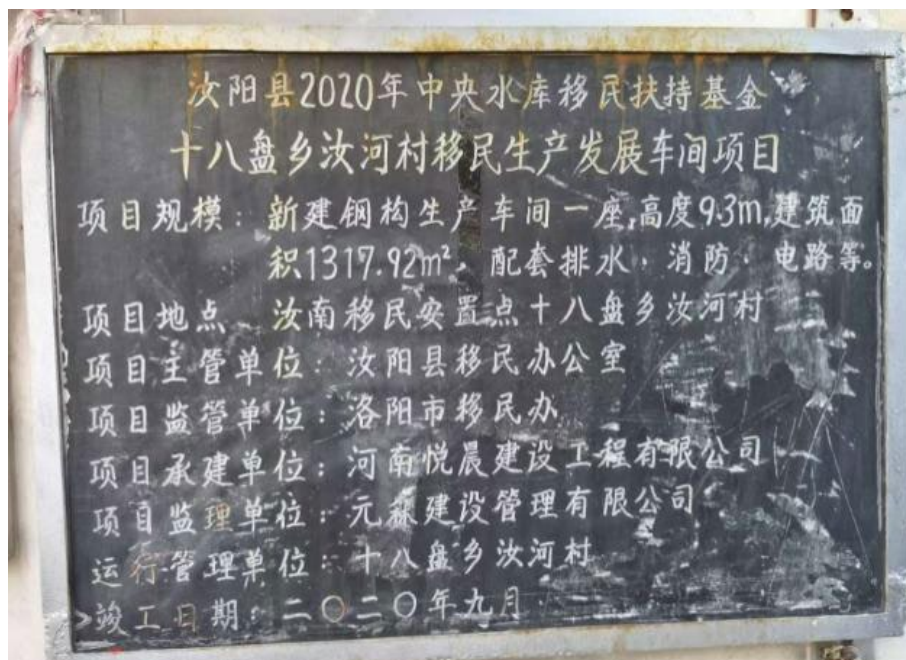 汝阳县2020年中央水库移民扶持基金
十八盘乡汝河村移民生产发展车间项目
项目规模:新建钢构生产车间一座,高度9.3m,建筑面
积1317.92m²,配套排水、消防、电路等。
项目地点 汝南移民安置点十八盘乡汝河村
项目主管单位:汝阳县移民办公室
项目监管单位:洛阳市移民办
项目承建单位:河南悦晨建设工程有限公司
项目监理单位:元森建设管理有限公司
运行管理单位:十八盘乡汝河村
竣工日期:二〇二〇年九月